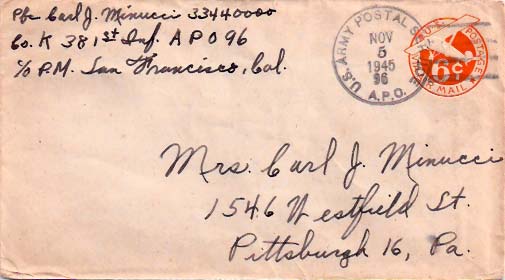 Pfc Carl J. Minucci 33440000
Co. K 381st Inf. A P O 96
c/o P.M. San Francisco, Cal.
U.S. ARMY POSTAL SERVICE
NOV
5
1945
96
A.P.O.
U.S. POSTAGE
6¢
VIA AIR MAIL
Mrs. Carl J. Minucci
1546 Westfield St.
Pittsburgh 16, Pa.